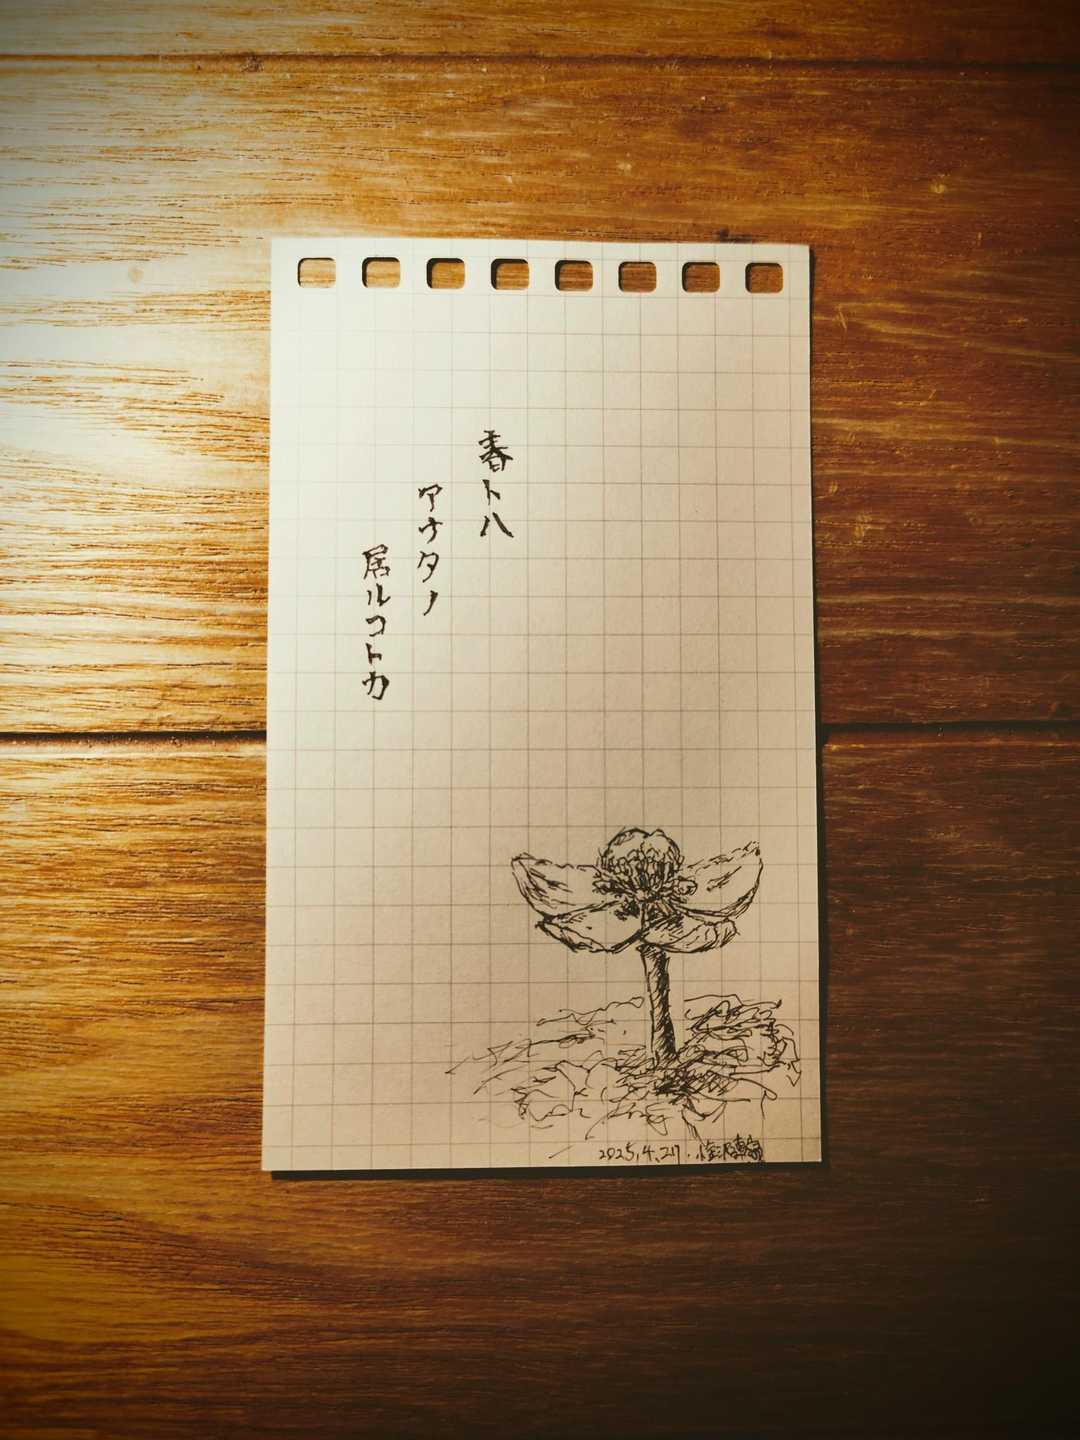 春トハ
アナタノ
居ルコトカ
2025.4.27.